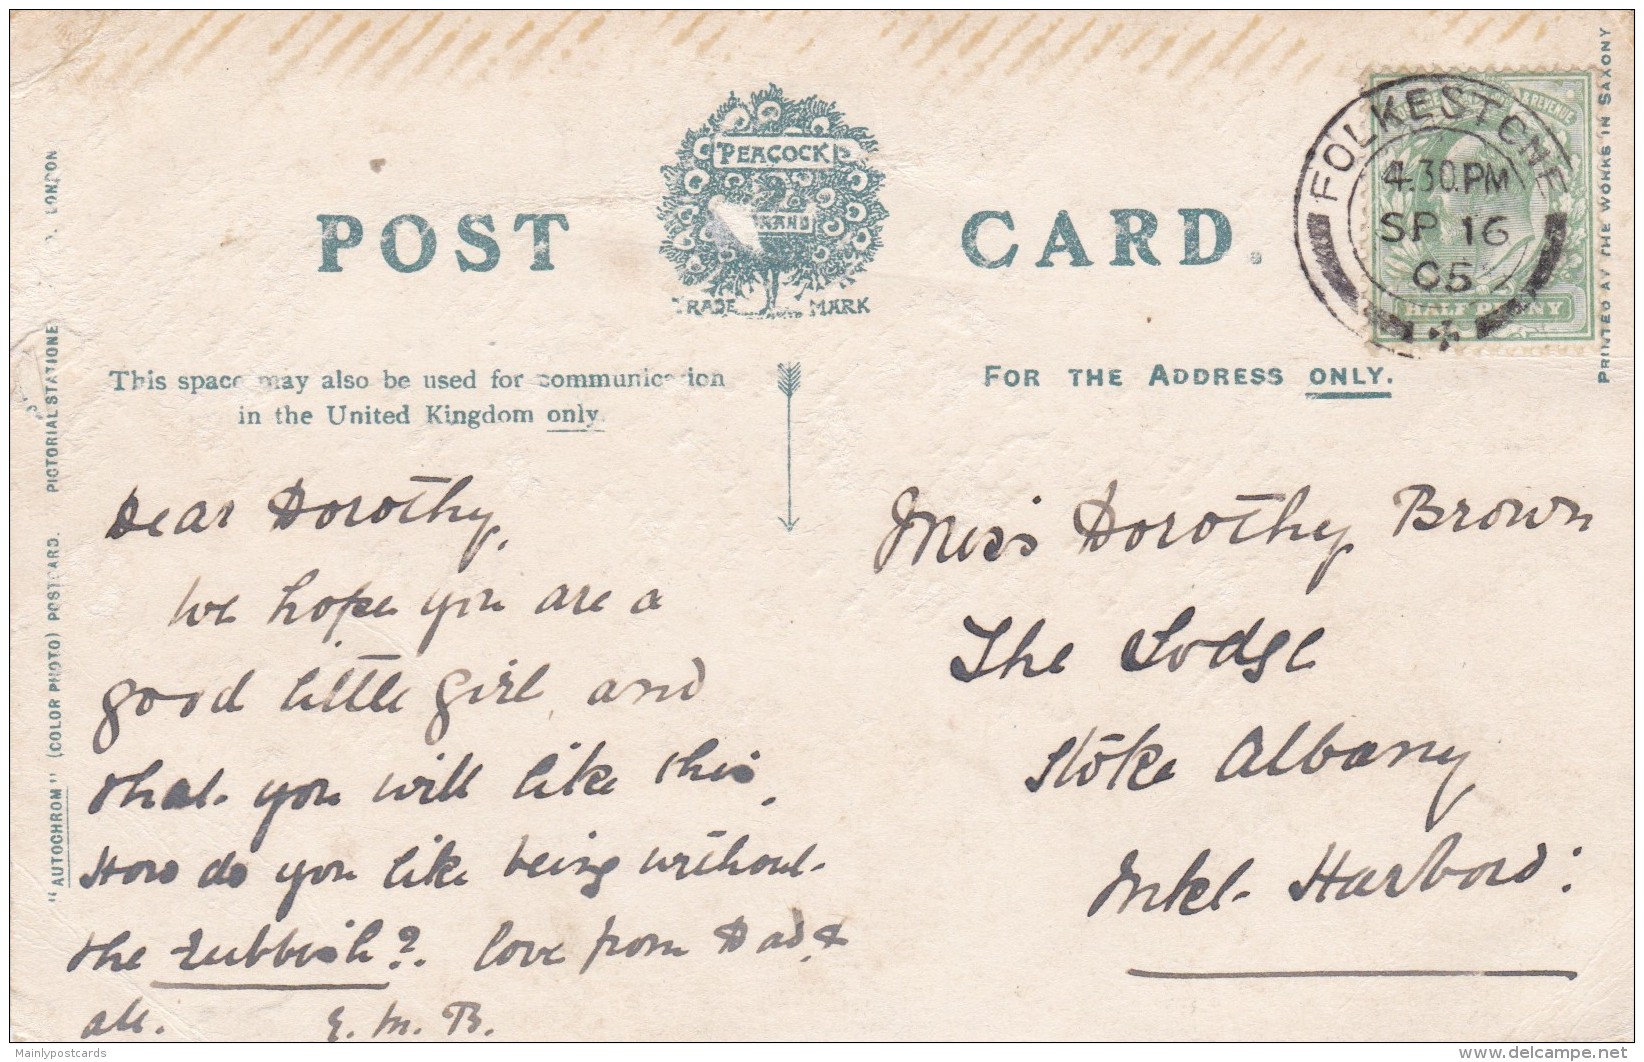 POST CARD.
PEACOCK
BRAND
TRADE MARK
This space may also be used for communication
in the United Kingdom only.
FOR THE ADDRESS ONLY.
FOLKESTONE
4.30.PM
SP 16
05
HALF PENNY
PRINTED AT THE WORKS IN SAXONY
"AUTOCHROM" (COLOR PHOTO) POSTCARD. PICTORIAL STATIONE LONDON
Dear Dorothy,
We hope you are a
good little girl, and
that you will like this.
How do you like being without
the rubbish? love from Dad &
all. E. M. B.
Miss Dorothy Brown
The Lodge
Stoke Albany
Mkt. Harboro:
Mainlypostcards
delcampe.net